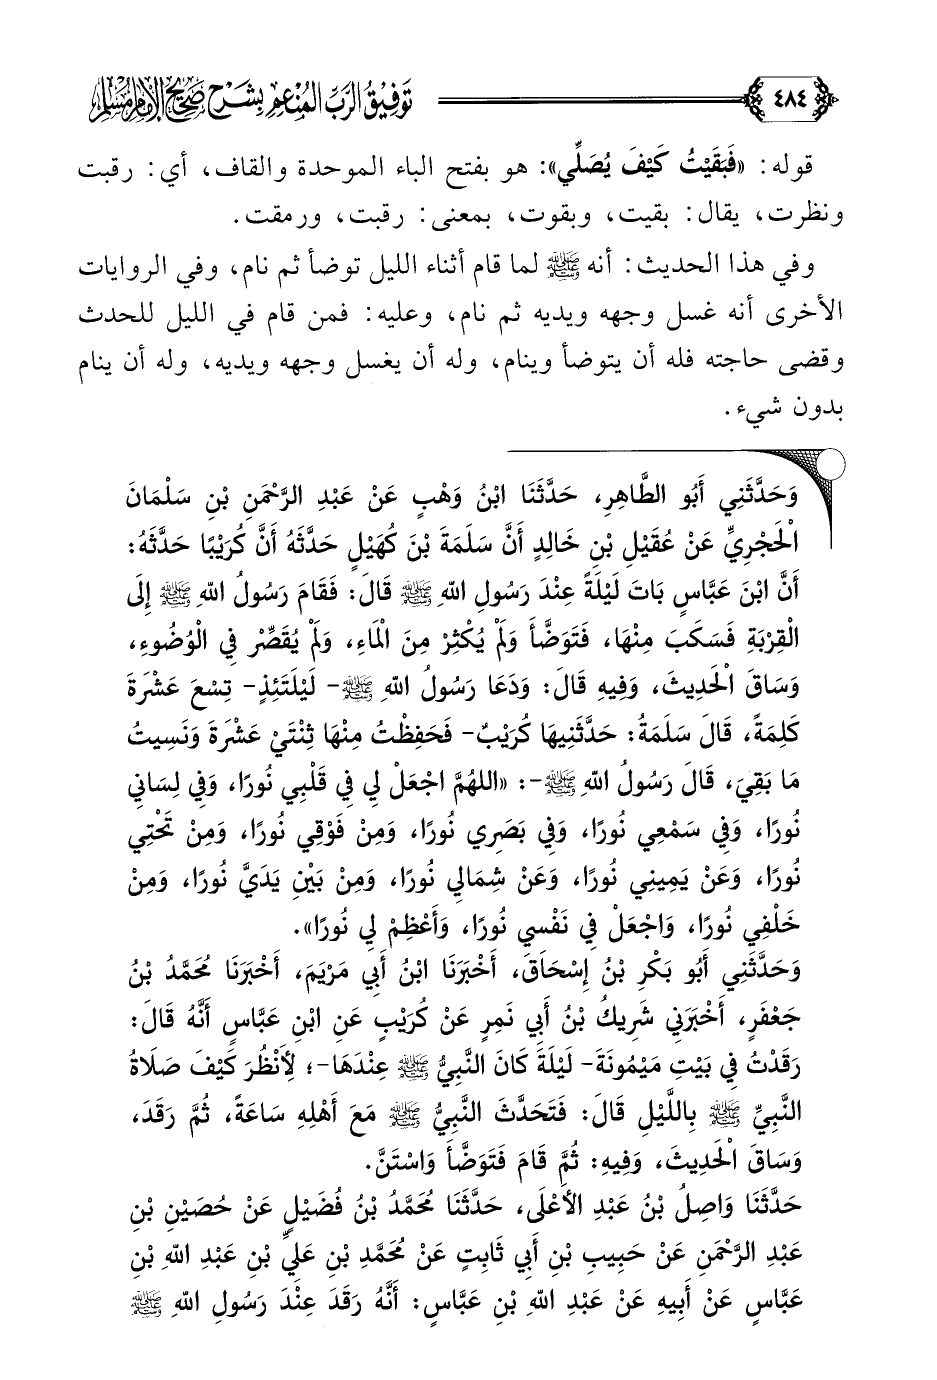 ٤٨٤ توفيق الرب المنعم بشرح صحيح الإمام مسلم
قوله: «فَبَقَيْتُ كَيْفَ يُصَلِّي»: هو بفتح الباء الموحدة والقاف، أي: رقبت
ونظرت، يقال: بقيت، وبقوت، بمعنى: رقبت، ورمقت.
وفي هذا الحديث: أنه ﷺ لما قام أثناء الليل توضأ ثم نام، وفي الروايات
الأخرى أنه غسل وجهه ويديه ثم نام، وعليه: فمن قام في الليل للحدث
وقضى حاجته فله أن يتوضأ وينام، وله أن يغسل وجهه ويديه، وله أن ينام
بدون شيء.
وَحَدَّثَنِي أَبُو الطَّاهِرِ، حَدَّثَنَا ابْنُ وَهْبٍ عَنْ عَبْدِ الرَّحْمَنِ بْنِ سَلْمَانَ
الْحَجْرِيِّ عَنْ عُقَيْلِ بْنِ خَالِدٍ أَنَّ سَلَمَةَ بْنَ كُهَيْلٍ حَدَّثَهُ أَنَّ كُرَيْبًا حَدَّثَهُ:
أَنَّ ابْنَ عَبَّاسٍ بَاتَ لَيْلَةً عِنْدَ رَسُولِ اللهِ ﷺ قَالَ: فَقَامَ رَسُولُ اللهِ ﷺ إِلَى
الْقِرْبَةِ فَسَكَبَ مِنْهَا، فَتَوَضَّأَ وَلَمْ يُكْثِرْ مِنَ الْمَاءِ، وَلَمْ يُقَصِّرْ فِي الْوُضُوءِ،
وَسَاقَ الْحَدِيثَ، وَفِيهِ قَالَ: وَدَعَا رَسُولُ اللهِ ﷺ- لَيْلَتَئِذٍ- تِسْعَ عَشْرَةَ
كَلِمَةً، قَالَ سَلَمَةُ: حَدَّثَنِيهَا كُرَيْبٌ- فَحَفِظْتُ مِنْهَا ثِنْتَيْ عَشْرَةَ وَنَسِيتُ
مَا بَقِيَ، قَالَ رَسُولُ اللهِ ﷺ-: «اللهُمَّ اجْعَلْ لِي فِي قَلْبِي نُورًا، وَفِي لِسَانِي
نُورًا، وَفِي سَمْعِي نُورًا، وَفِي بَصَرِي نُورًا، وَمِنْ فَوْقِي نُورًا، وَمِنْ تَحْتِي
نُورًا، وَعَنْ يَمِينِي نُورًا، وَعَنْ شِمَالِي نُورًا، وَمِنْ بَيْنِ يَدَيَّ نُورًا، وَمِنْ
خَلْفِي نُورًا، وَاجْعَلْ فِي نَفْسِي نُورًا، وَأَعْظِمْ لِي نُورًا».
وَحَدَّثَنِي أَبُو بَكْرِ بْنُ إِسْحَاقَ، أَخْبَرَنَا ابْنُ أَبِي مَرْيَمَ، أَخْبَرَنَا مُحَمَّدُ بْنُ
جَعْفَرٍ، أَخْبَرَنِي شَرِيكُ بْنُ أَبِي نَمِرٍ عَنْ كُرَيْبٍ عَنِ ابْنِ عَبَّاسٍ أَنَّهُ قَالَ:
رَقَدْتُ فِي بَيْتِ مَيْمُونَةَ- لَيْلَةَ كَانَ النَّبِيُّ ﷺ عِنْدَهَا-؛ لِأَنْظُرَ كَيْفَ صَلَاةُ
النَّبِيِّ ﷺ بِاللَّيْلِ قَالَ: فَتَحَدَّثَ النَّبِيُّ ﷺ مَعَ أَهْلِهِ سَاعَةً، ثُمَّ رَقَدَ،
وَسَاقَ الْحَدِيثَ، وَفِيهِ: ثُمَّ قَامَ فَتَوَضَّأَ وَاسْتَنَّ.
حَدَّثَنَا وَاصِلُ بْنُ عَبْدِ الأَعْلَى، حَدَّثَنَا مُحَمَّدُ بْنُ فُضَيْلٍ عَنْ حُصَيْنِ بْنِ
عَبْدِ الرَّحْمَنِ عَنْ حَبِيبِ بْنِ أَبِي ثَابِتٍ عَنْ مُحَمَّدِ بْنِ عَلِيِّ بْنِ عَبْدِ اللهِ بْنِ
عَبَّاسٍ عَنْ أَبِيهِ عَنْ عَبْدِ اللهِ بْنِ عَبَّاسٍ: أَنَّهُ رَقَدَ عِنْدَ رَسُولِ اللهِ ﷺ